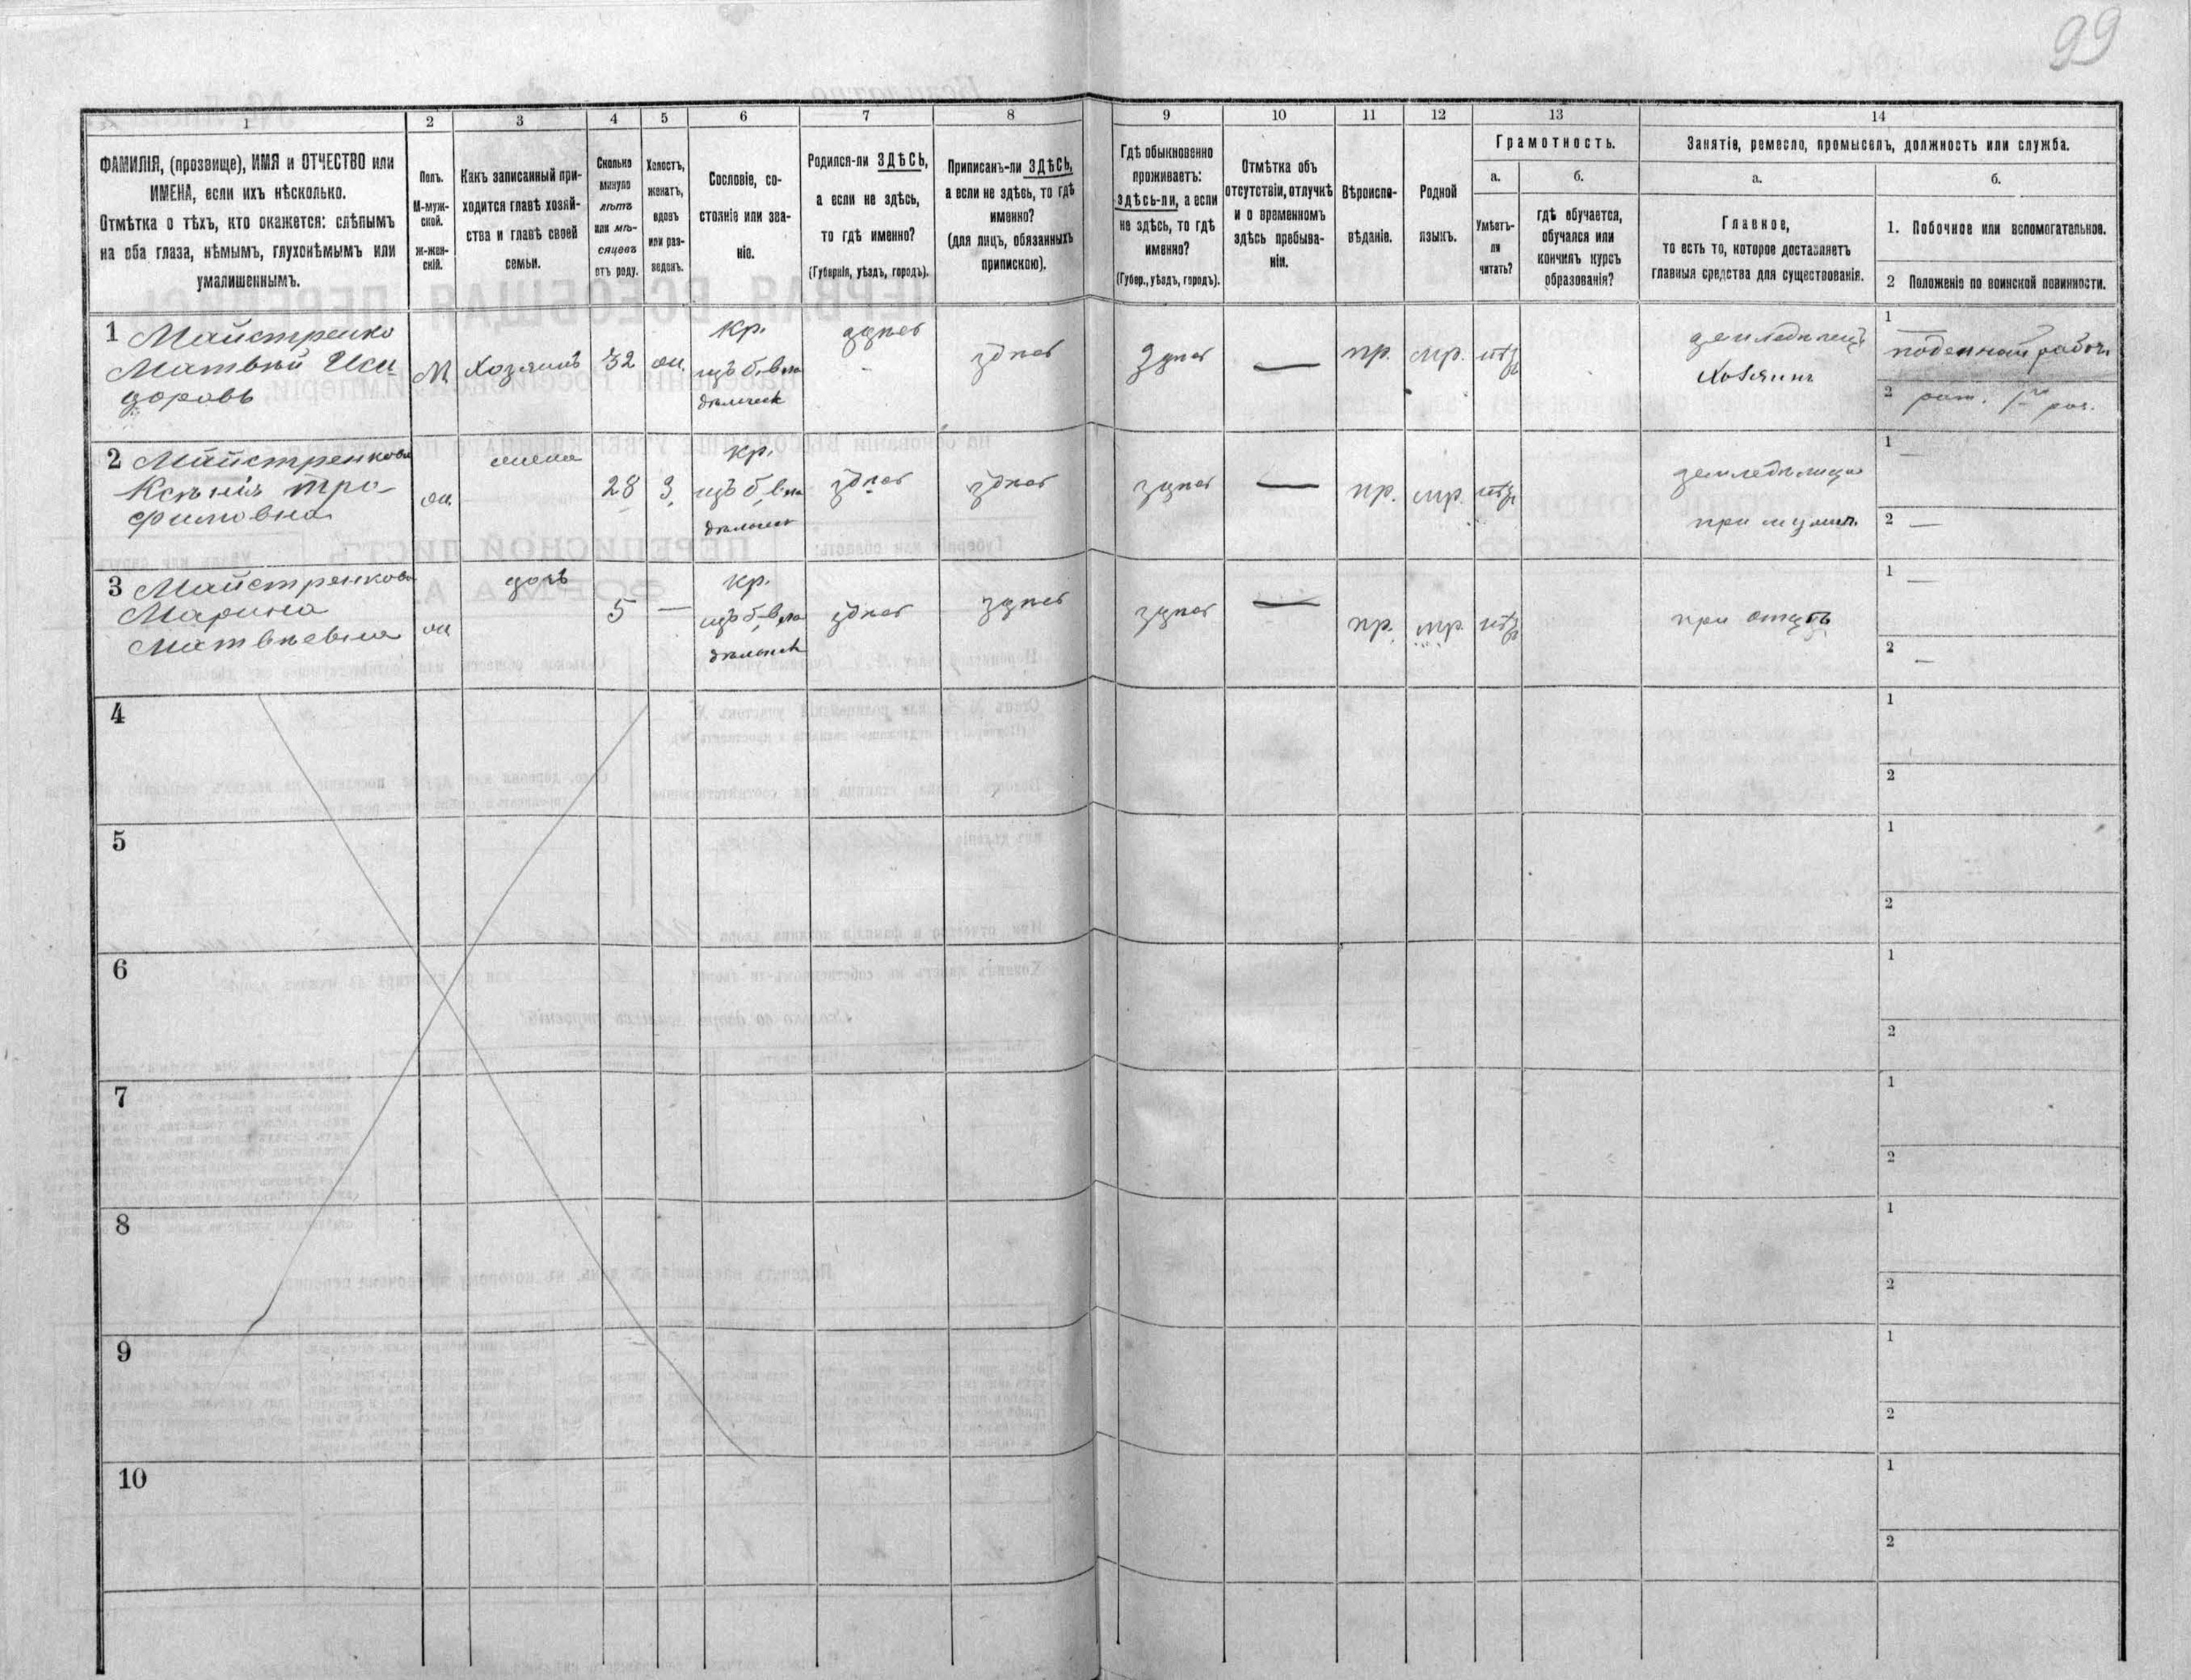 99
1 2 3 4 5 6 7 8 9 10 11 12 13 14
ФАМИЛІЯ, (прозвище), ИМЯ и ОТЧЕСТВО или
ИМЕНА, если ихъ нѣсколько.
Отмѣтка о тѣхъ, кто окажется: слѣпымъ
на оба глаза, нѣмымъ, глухонѣмымъ или
умалишеннымъ.
Полъ.
М-муж-
ской.
Ж-жен-
скій.
Какъ записанный при-
ходится главѣ хозяй-
ства и главѣ своей
семьи.
Сколько
минуло
лѣтъ
или мѣ-
сяцевъ
отъ роду.
Холостъ,
женатъ,
вдовъ
или раз-
веденъ.
Сословіе, со-
стояніе или зва-
ніе.
Родился-ли ЗДѢСЬ,
а если не здѣсь,
то гдѣ именно?
(Губернія, уѣздъ, городъ).
Приписанъ-ли ЗДѢСЬ,
а если не здѣсь, то гдѣ
именно?
(для лицъ, обязанныхъ
припискою).
Гдѣ обыкновенно
проживаетъ:
здѣсь-ли, а если
не здѣсь, то гдѣ
именно?
(Губер., уѣздъ, городъ).
Отмѣтка объ
отсутствіи, отлучкѣ
и о временномъ
здѣсь пребыва-
ніи.
Вѣроиспо-
вѣданіе.
Родной
языкъ.
Грамотность.
а.
Умѣетъ-
ли
читать?
б.
гдѣ обучается,
обучался или
кончилъ курсъ
образованія?
Занятіе, ремесло, промыселъ, должность или служба.
а.
Главное,
то есть то, которое доставляетъ
главныя средства для существованія.
б.
1. Побочное или вспомогательное.
2 Положеніе по воинской повинности.
1 Майстренко
Матвѣй Иси-
доровъ
М
Хозяинъ
32
ж.
Кр.
изъ б. вла
дѣльческ
здѣсь
здѣсь
здѣсь
—
пр.
мр.
нѣтъ
земледѣлецъ
Хозяинъ
1 —
поденный рабоч.
2 рат. 1го раз.
2 Майстренкова
Ксенія Тро-
фимовна
ж.
жена
28
З.
Кр.
изъ б. вла
дѣльческ
здѣсь
здѣсь
здѣсь
—
пр.
мр.
нѣтъ
земледѣлица
при мужѣ.
1 —
2 —
3 Майстренкова
Марина
Матвѣевна
ж
дочь
5
—
Кр.
изъ б. вла
дѣльческ
здѣсь
здѣсь
здѣсь
—
пр.
мр.
нѣтъ
при отцѣ
1 —
2 —
4
1
2
5
1
2
6
1
2
7
1
2
8
1
2
9
1
2
10
1
2